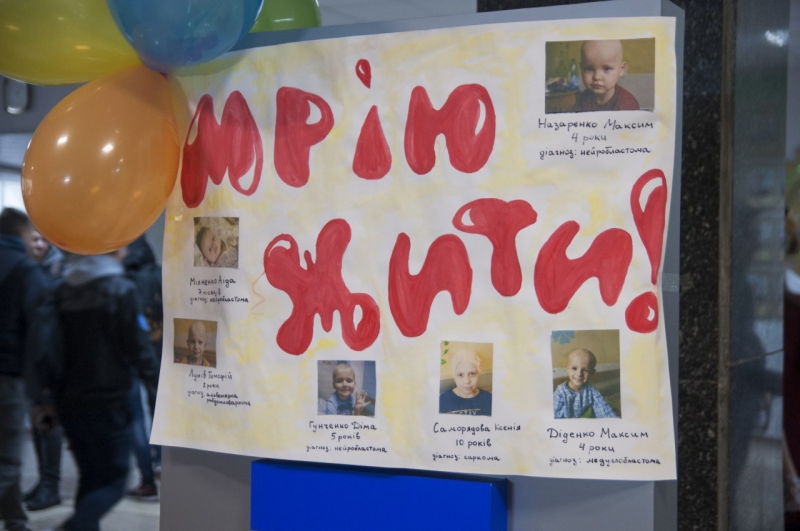 мрію
жити!
Назаренко Максим
4 роки
діагноз: нейробластома
Міхненко Аіда
діагноз: нейробластома
2 роки
Гунченко Діма
5 років
діагноз: нейробластома
Саморядова Ксенія
10 років
діагноз: саркома
Діденко Максим
4 роки
діагноз: медулобластома